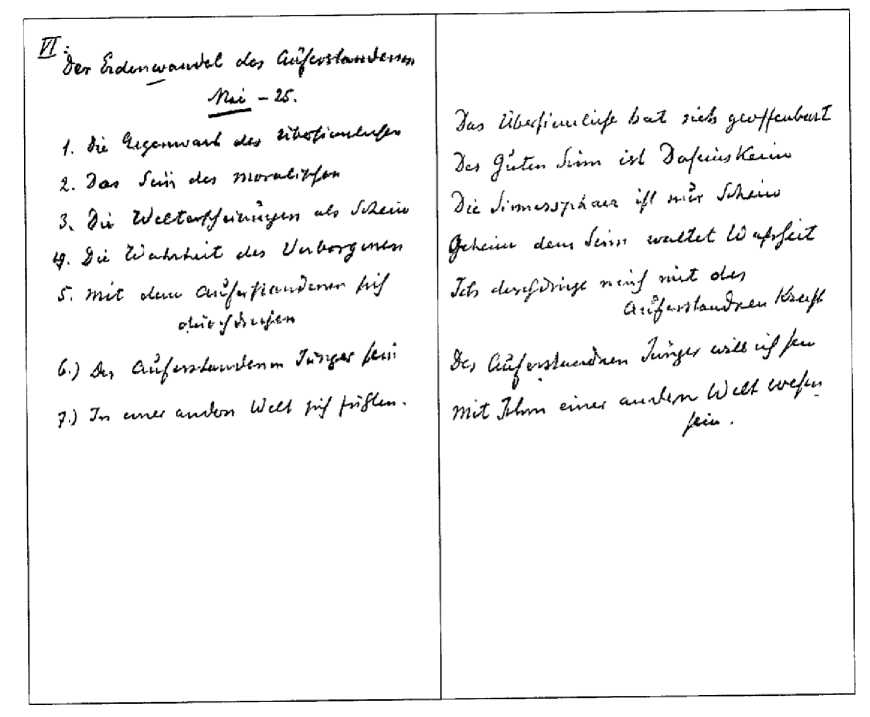 VI:
Der Erdenwandel des Auferstandenen
Mai – 25.
1. Die Gegenwart des Übersinnlichen
2. Das Sein des Moralischen
3. Die Welterscheinungen als Schein
4. Die Wahrheit des Verborgenen
5. Mit dem Auferstandenen sich
durchdringen
6.) Des Auferstandenen Jünger sein
7.) In einer andern Welt sich fühlen.
Das Übersinnliche hat sich geoffenbart
Des Guten Sinn ist Daseinskeim
Die Sinnessphäre ist nur Schein
Geheim dem Sinn waltet Wahrheit
Ich durchdringe mich mit des
Auferstandnen Kraft
Des Auferstandnen Jünger will ich sein
Mit Ihm einer andern Welt Wesen
sein.